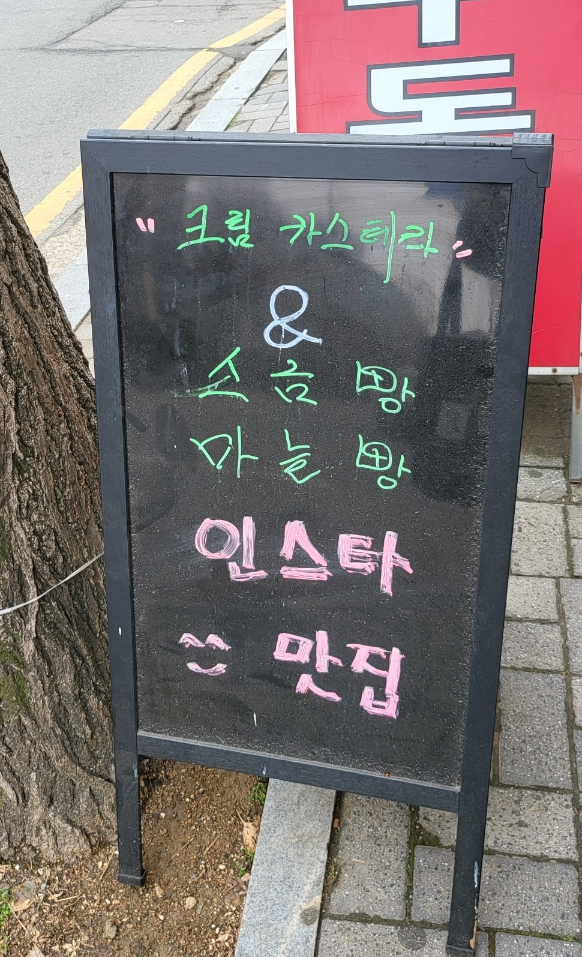 수도
"크림 카스테라"
&
소금 빵
마늘 빵
인스타
^^ 맛집